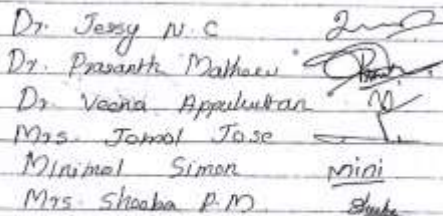 Dr. Jessy N. C
Dr. Prasanth Mathew
Dr. Veena Appukuttan
Mrs. Jomol Jose
Minimol Simon mini
Mrs. Sheeba P. M